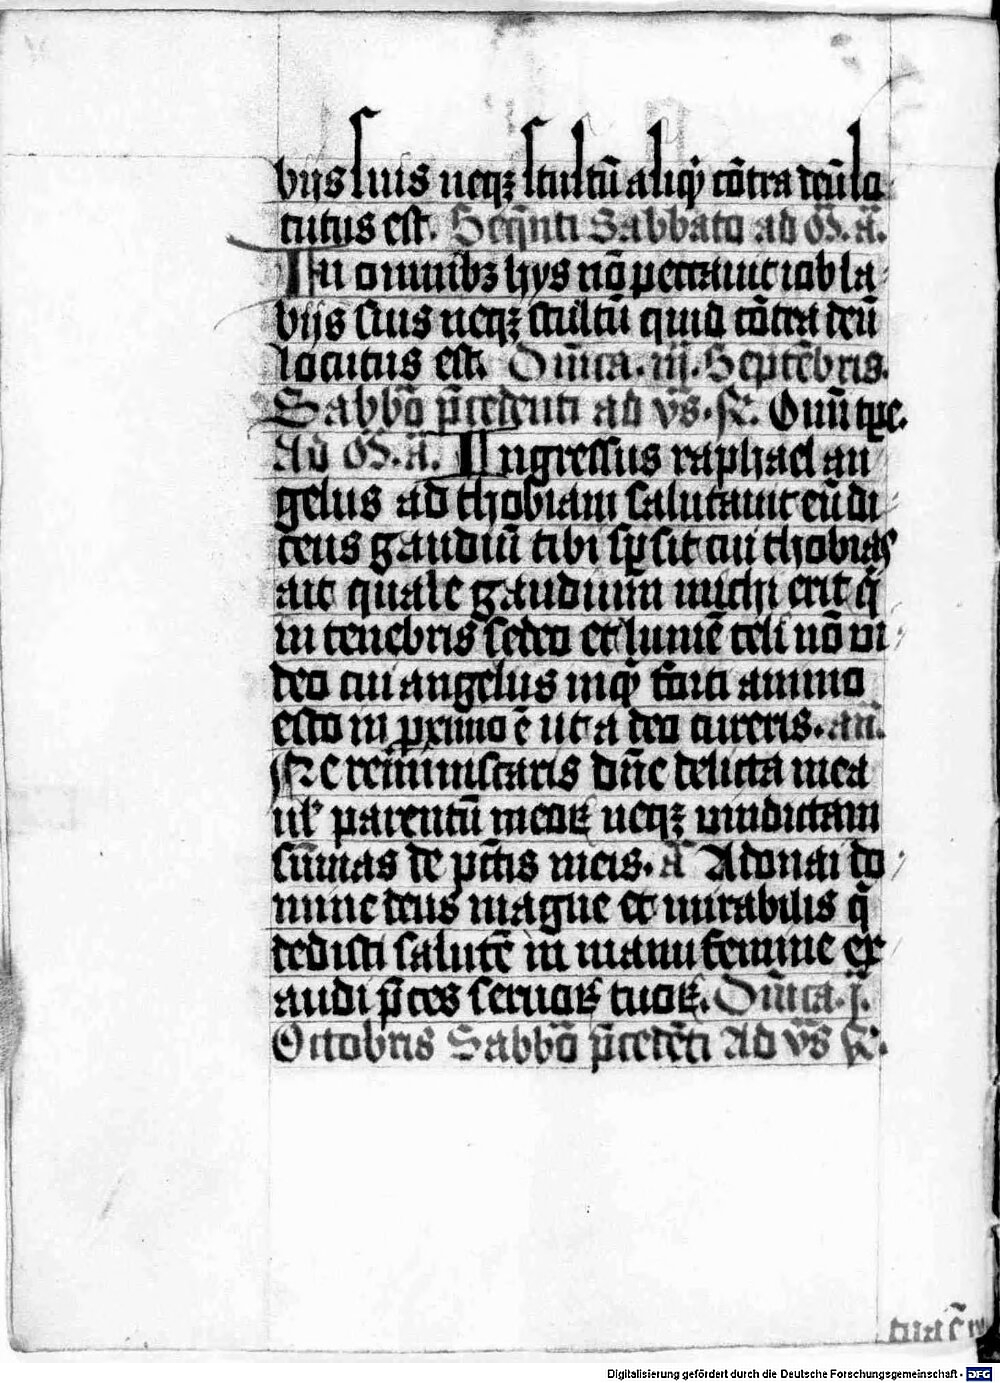 bijs suis neqꝫ stultū aliqͥ cōtra deū lo
cutus est. Seqn̄ti Sabbato ad M̄. ā.
In omnibꝫ hys nō peccauit iob la
bijs suis neqꝫ stultū quid cōtra deū
locutus est. Dn̄ica. iij. Septēbris.
Sabbō p̄cedenti ad vs̄. Om̄ tp̄e.
Ad M̄. ā. Ingressus raphael an
gelus ad thobiam salutauit eū di
cens gaudiū tibi sp̄ sit cui thobias
ait quale gaudium michi erit q̄
in tenebris sedeo et lumē celi nō vi
deo cui angelus inqͥ forti animo
esto in proximo ē ut a deo cureris. an̄.
Ne reminiscaris dn̄e delicta mea
ul̕ parentū meoꝝ neqꝫ vindictam
sūmas de pctīs meis. ā Adonai do
mine deus magne et mirabilis q̄
dedisti salutē in manu femine ex
audi p̄ces seruoꝝ tuoꝝ. Dn̄ica. j.
Octobris Sabbō p̄cedēti Ad vs̄
Digitalisierung gefördert durch die Deutsche Forschungsgemeinschaft - DFG